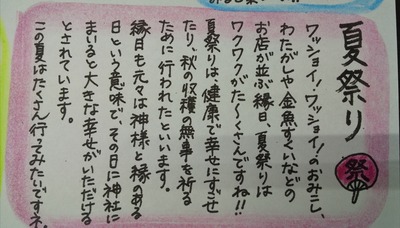 夏祭り
祭
ワッショイ!ワッショイ!のおみこし、
わたがしや金魚すくいなどの
お店が並ぶ縁日、夏祭りは
ワクワクがた〜くさんですね!!
夏祭りは、健康で幸せにすごせ
たり、秋の収穫の無事を祈る
ために行われたといいます。
縁日も元々は神様と縁のある
日という意味で、その日に神社に
まいると大きな幸せがいただける
とされています。
この夏はたくさん行ってみたいですネ。